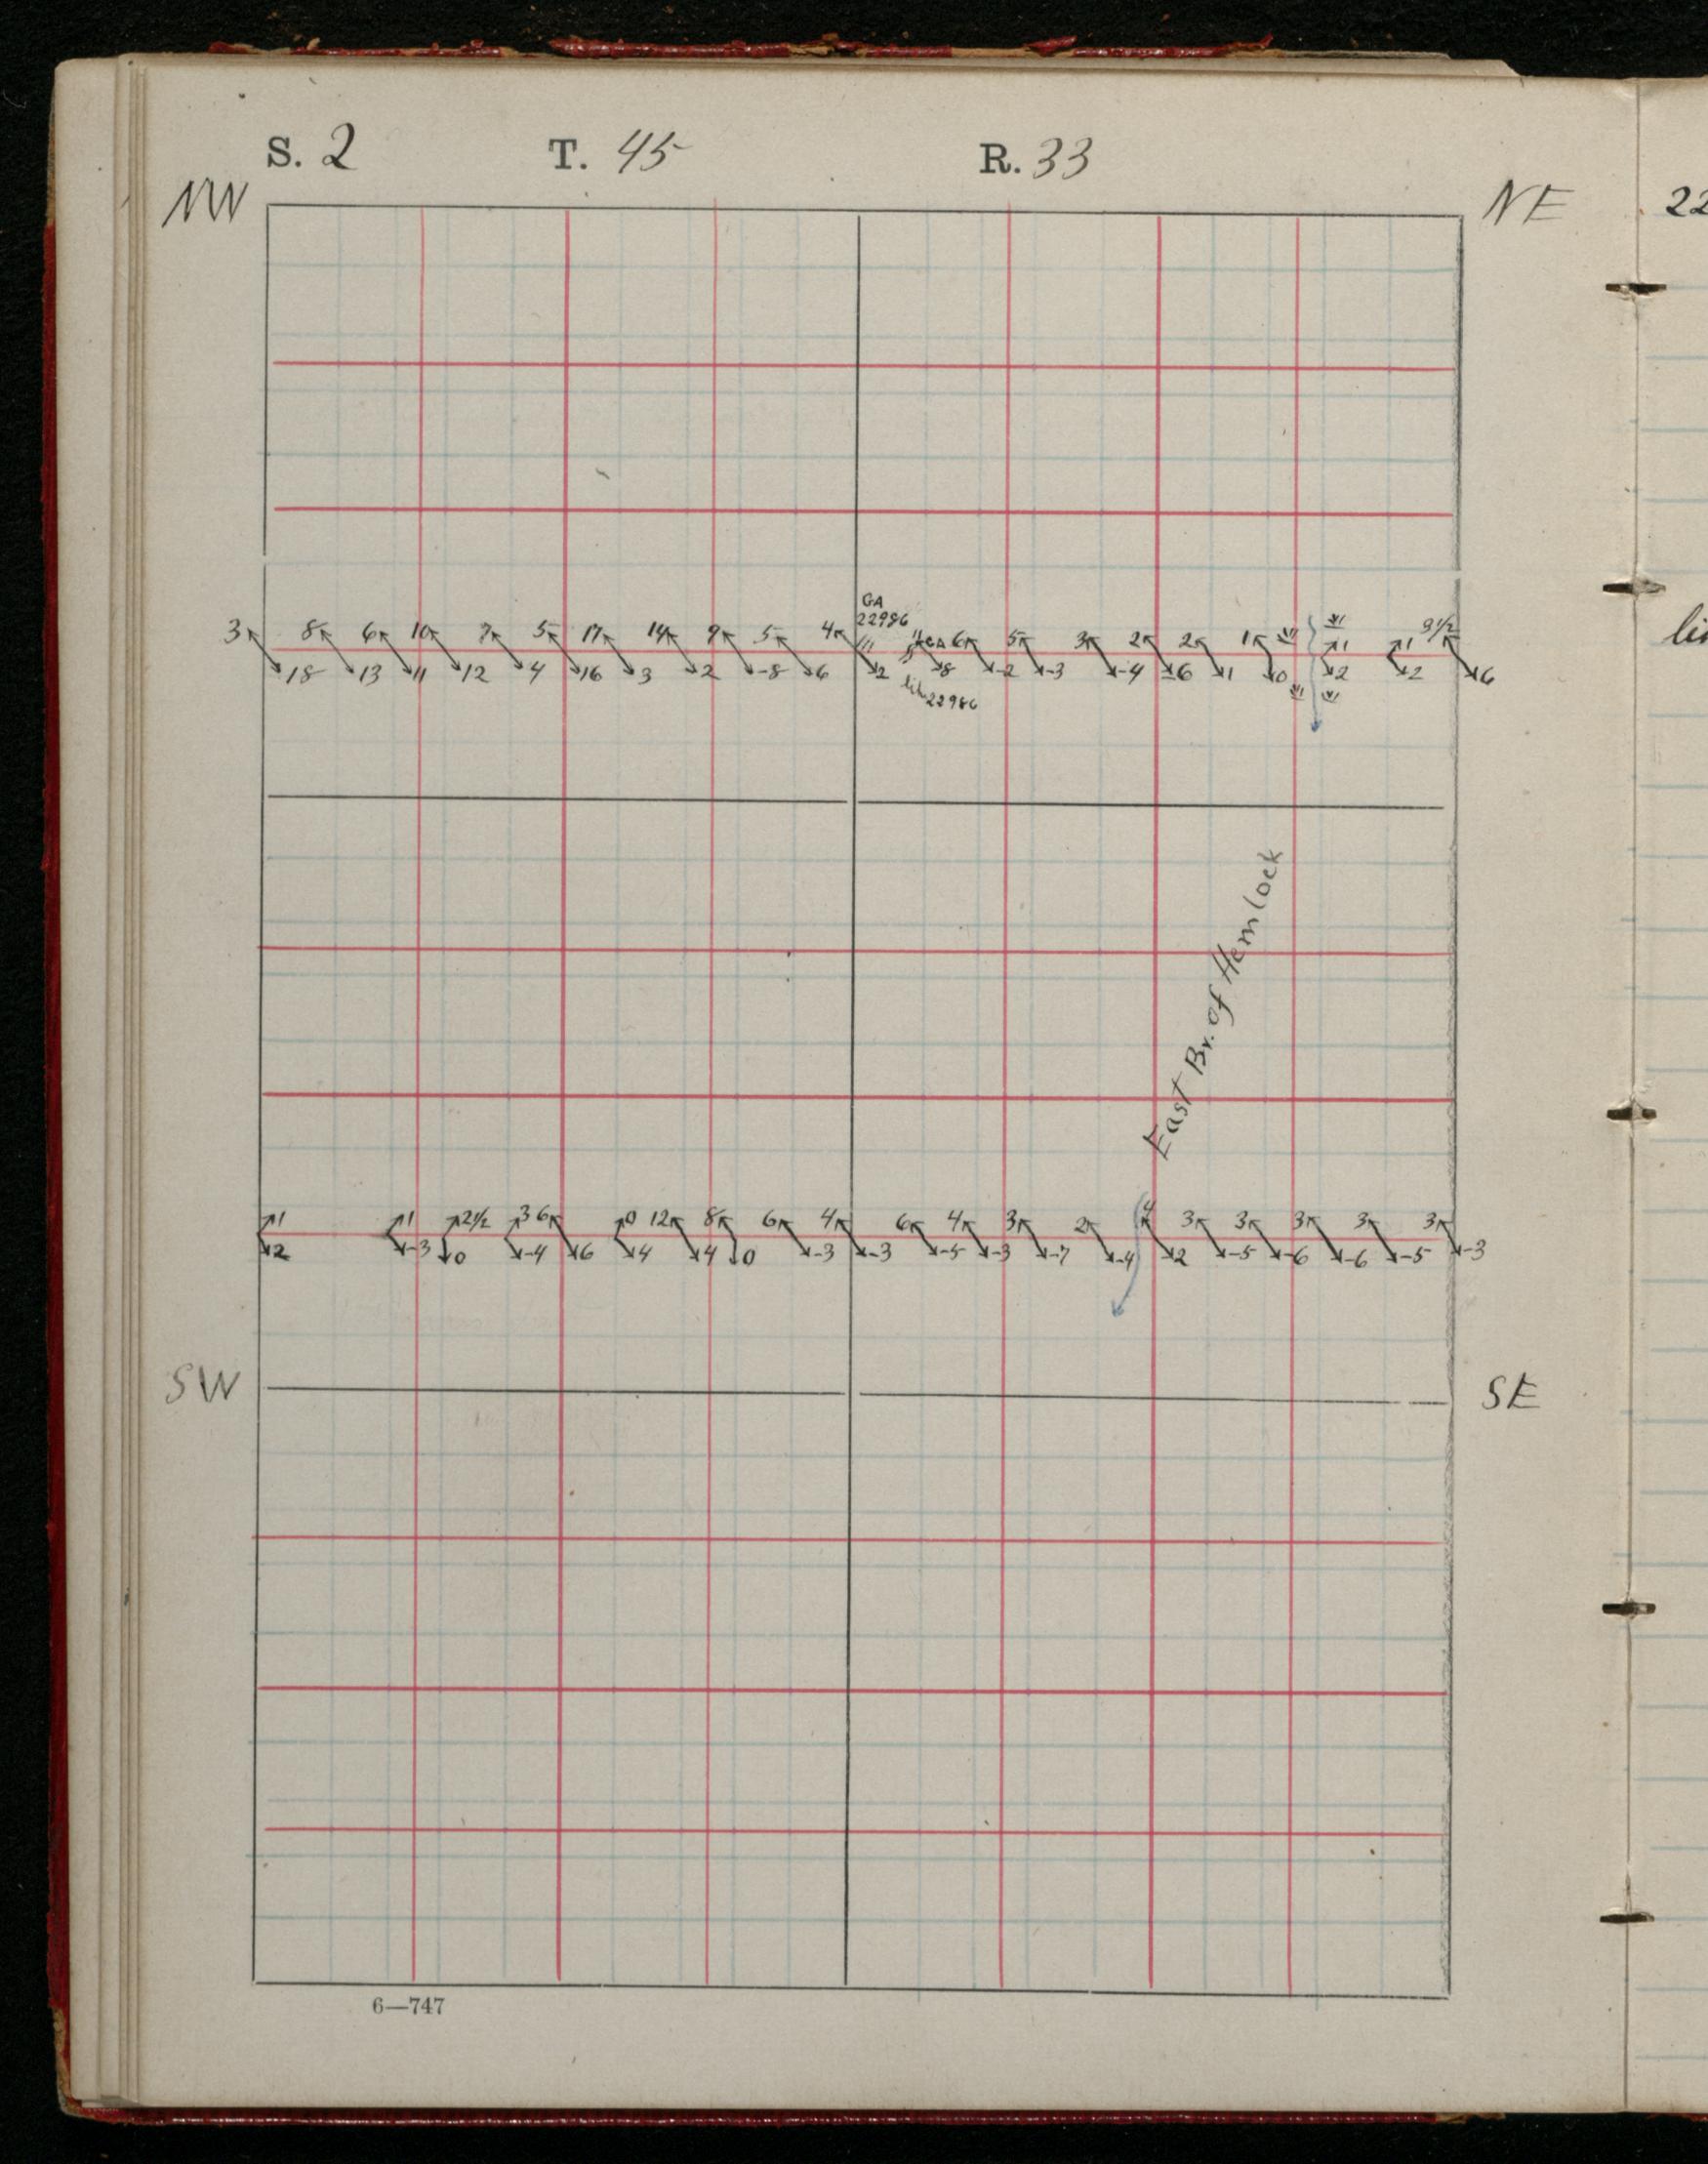 S. 2 T. 45 R. 33
NW NE 22
GA
22986
3 8 6 10 7 5 17 14 9 5 4 GA 6 5 3 2 2 1 1 1 9 1/2
18 13 11 12 4 16 3 2 -8 6 2 8 -2 -3 -4 6 1 0 2 2 6
22986
East Br. of Hemlock
1 1 2 1/2 3 6 0 12 8 6 4 6 4 3 2 4 3 3 3 3 3
2 -3 0 -4 6 4 4 0 -3 -3 -5 -3 -7 -4 2 -5 -6 -6 -5 -3
SW SE
6—747